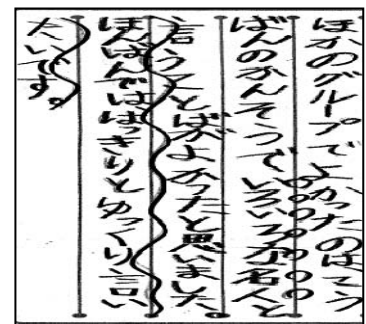 ほかのグループでよかったのは、こう
ばんのかんそうでいろいろな名人と
言うことばがよかったと思いました。
ほんばんでははっきりとゆっくり言い
たいです。